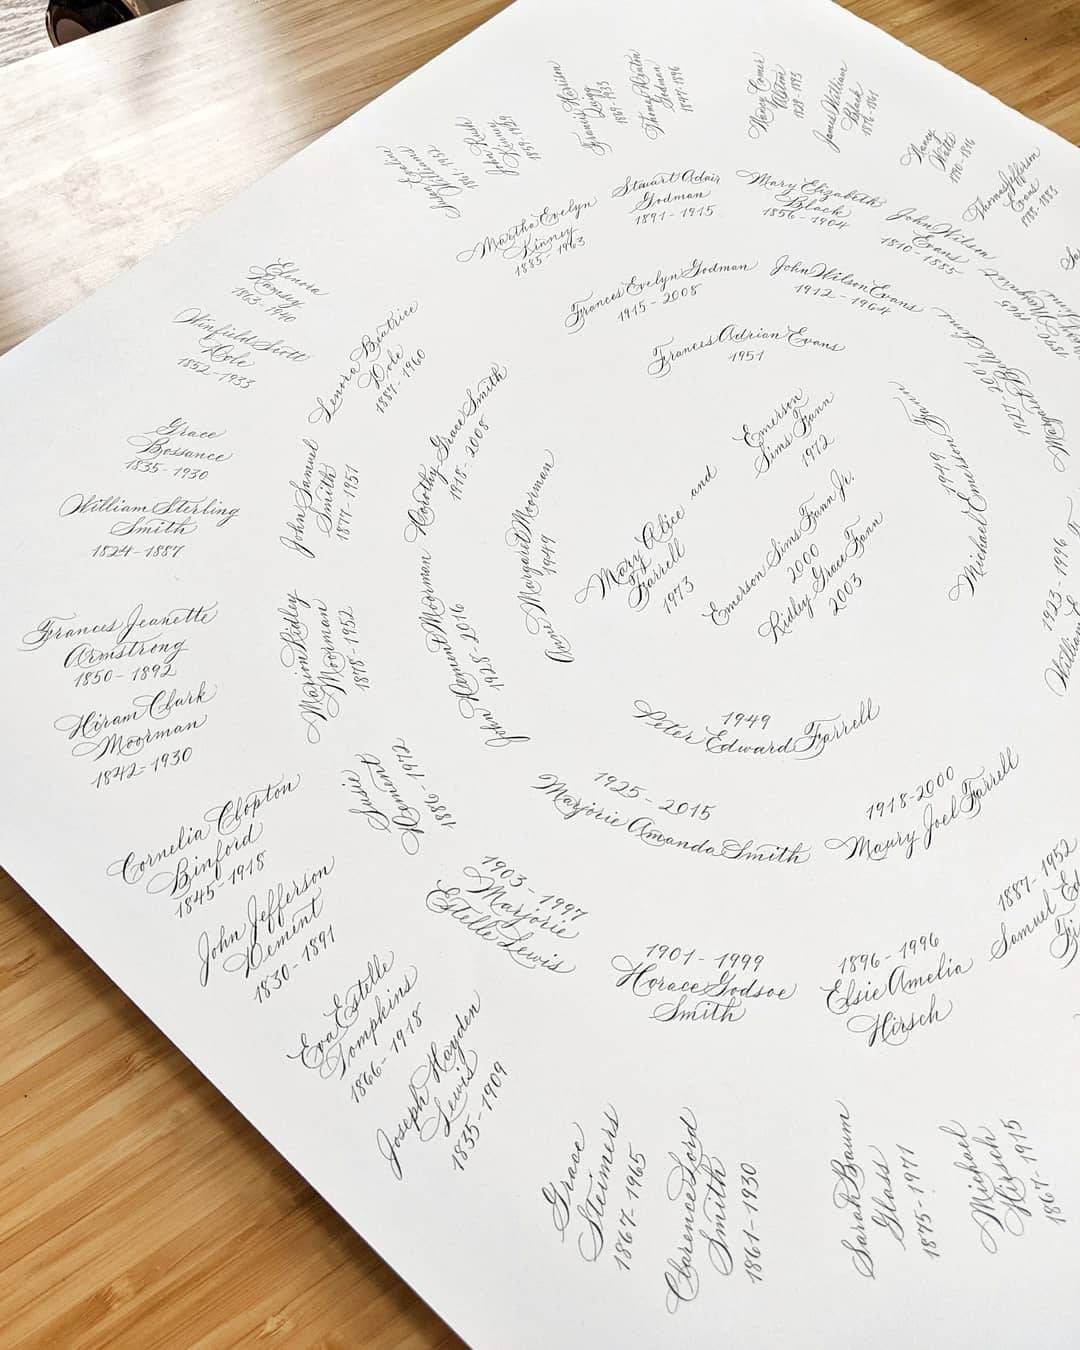 Mary Alice
Farrell
1973
and
Emerson
Sims Fann
1972
Emerson Sims Fann Jr.
2000
Ridley Grace Fann
2003
Anne Margaret Moorman
1949
Frances Adrian Evans
1951
1949
Michael Emerson Fann
1949
Peter Edward Farrell
John Dement Moorman
1928 - 2016
Dorothy Grace Smith
1918 - 2008
Frances Evelyn Godman
1915 - 2008
John Wilson Evans
1912 - 1964
1927 - 2001
1923 - 1996
William
1918 - 2000
Maury Joel Farrell
1925 - 2015
Marjorie Amanda Smith
Susie
Dement
1886 - 1972
Marion Ridley
Moorman
1878 - 1952
John Samuel
Smith
1877 - 1951
Lenora Beatrice
Dole
1887 - 1960
Martha Evelyn
Kinney
1885 - 1963
Stuart Adair
Godman
1891 - 1915
Mary Elizabeth
Black
1856 - 1904
John Wilson
Evans
1810 - 1885
1887 - 1952
Samuel
1896 - 1996
Elsie Amelia
Hirsch
1901 - 1999
Horace Godsoe
Smith
1903 - 1997
Marjorie
Estelle Lewis
Joseph Hayden
Lewis
1835 - 1909
Eva Estelle
Tompkins
1866 - 1918
John Jefferson
Dement
1830 - 1891
Cornelia Clopton
Binford
1845 - 1918
Hiram Clark
Moorman
1842 - 1930
Frances Jeanette
Armstrong
1850 - 1892
William Sterling
Smith
1824 - 1887
Grace
Bossance
1835 - 1930
Winfield Scott
Dole
1852 - 1933
Elenora
Ramsey
1863 - 1940
John Rush
Kinney
Frances
Thomas
Godman
Nancy Comer
1828 - 1893
James William
Black
Nancy
Watts
Thomas Jefferson
Evans
1788 - 1883
Michael
Hirsch
1867 - 1915
Sarah Baum
Glass
1875 - 1971
Clarence Lord
Smith
1861 - 1930
Grace
Steimers
1867 - 1965